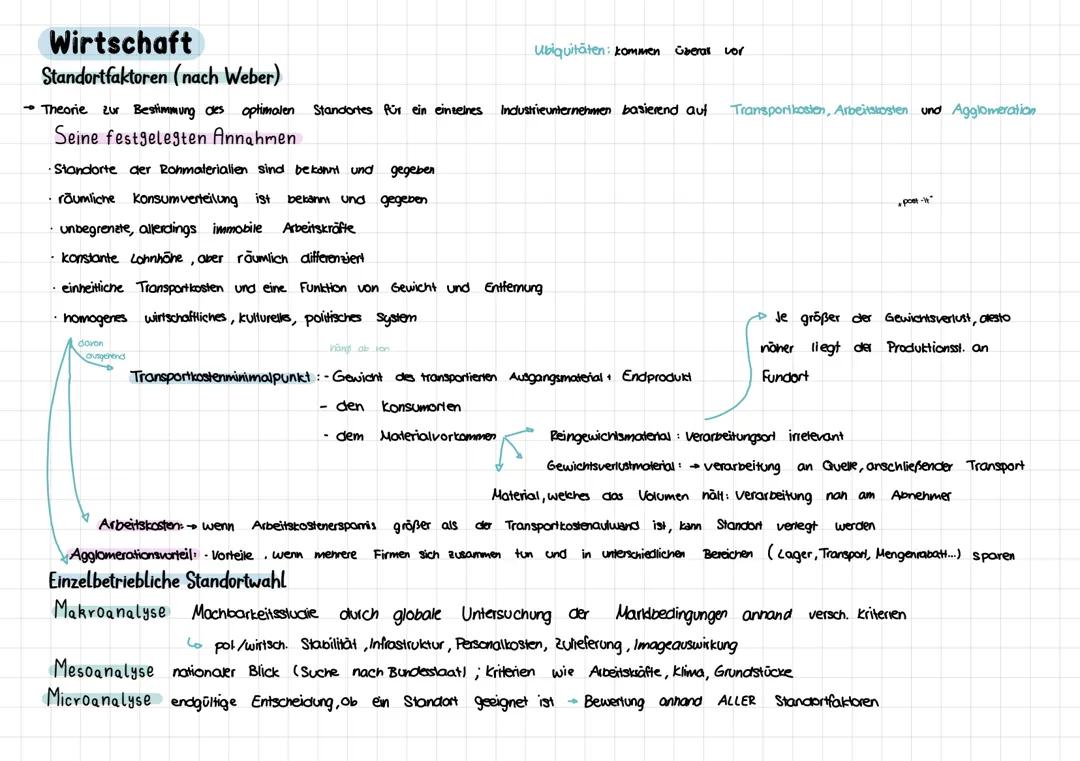 Wirtschaft
Ubiquitäten: kommen überall vor
Standortfaktoren (nach Weber)
→ Theorie zur Bestimmung des optimalen Standortes für ein einzelnes Industrieunternehmen basierend auf Transportkosten, Arbeitskosten und Agglomeration
Seine festgelegten Annahmen
· Standorte der Rohmaterialien sind bekannt und gegeben
· räumliche Konsumverteilung ist bekannt und gegeben
„post-it"
· unbegrenzte, allerdings immobile Arbeitskräfte
· konstante Lohnhöhe, aber räumlich differenziert
· einheitliche Transportkosten und eine Funktion von Gewicht und Entfernung
· homogenes wirtschaftliches, kulturelles, politisches System
Je größer der Gewichtsverlust, desto
näher liegt der Produktionsst. an
Fundort
davon
ausgehend
hängt ab von
Transportkostenminimalpunkt: - Gewicht des transportierten Ausgangsmaterial + Endprodukt
- den Konsumorten
- dem Materialvorkommen
Reingewichtsmaterial: Verarbeitungsort irrelevant
Gewichtsverlustmaterial: → verarbeitung an Quelle, anschließender Transport
Material, welches das Volumen hält: Verarbeitung nah am Abnehmer
Arbeitskosten: → wenn Arbeitskostenersparnis größer als der Transportkostenaufwand ist, kann Standort verlegt werden
Agglomerationsvorteil: · Vorteile, wenn mehrere Firmen sich zusammen tun und in unterschiedlichen Bereichen (Lager, Transport, Mengenrabatt...) sparen
Einzelbetriebliche Standortwahl
Makroanalyse Machbarkeitsstudie durch globale Untersuchung der Marktbedingungen anhand versch. Kriterien
↳ pol./wirtsch. Stabilität, Infrastruktur, Personalkosten, Zulieferung, Imageauswirkung
Mesoanalyse nationaler Blick (Suche nach Bundesstaat); Kriterien wie Arbeitskräfte, Klima, Grundstücke
Microanalyse endgültige Entscheidung, ob ein Standort geeignet ist → Bewertung anhand ALLER Standortfaktoren